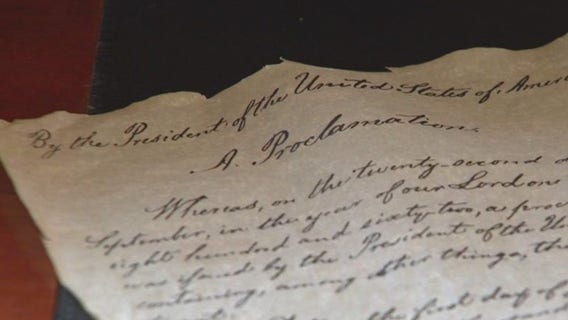 By the President of the United States of Ameri
A. Proclamation.
Whereas, on the twenty-second d
September, in the year of our Lord one
eight hundred and sixty-two, a proc
was issued by the President of the Un
containing, among other things, the
the first day of